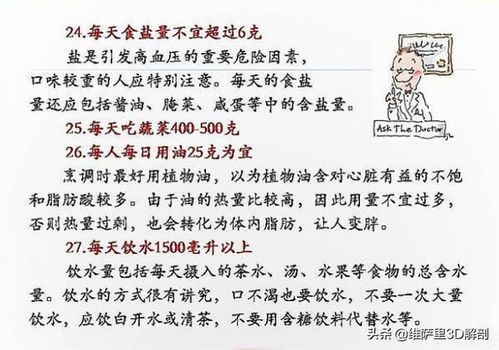 24.每天食盐量不宜超过6克
盐是引发高血压的重要危险因素，
口味较重的人应特别注意。每天的食盐
量还应包括酱油、腌菜、咸蛋等中的含盐量。
25.每天吃蔬菜400-500克
26.每人每日用油25克为宜
烹调时最好用植物油，以为植物油含对心脏有益的不饱
和脂肪酸较多。由于油的热量比较高，因此用量不宜过多，
否则热量过剩，也会转化为体内脂肪，让人变胖。
27.每天饮水1500毫升以上
饮水量包括每天摄入的茶水、汤、水果等食物的总含水
量。饮水的方式很有讲究，口不渴也要饮水，不要一次大量
饮水，应饮白开水或清茶，不要用含糖饮料代替水等。
Ask The Doctor
头条 @维萨里3D解剖